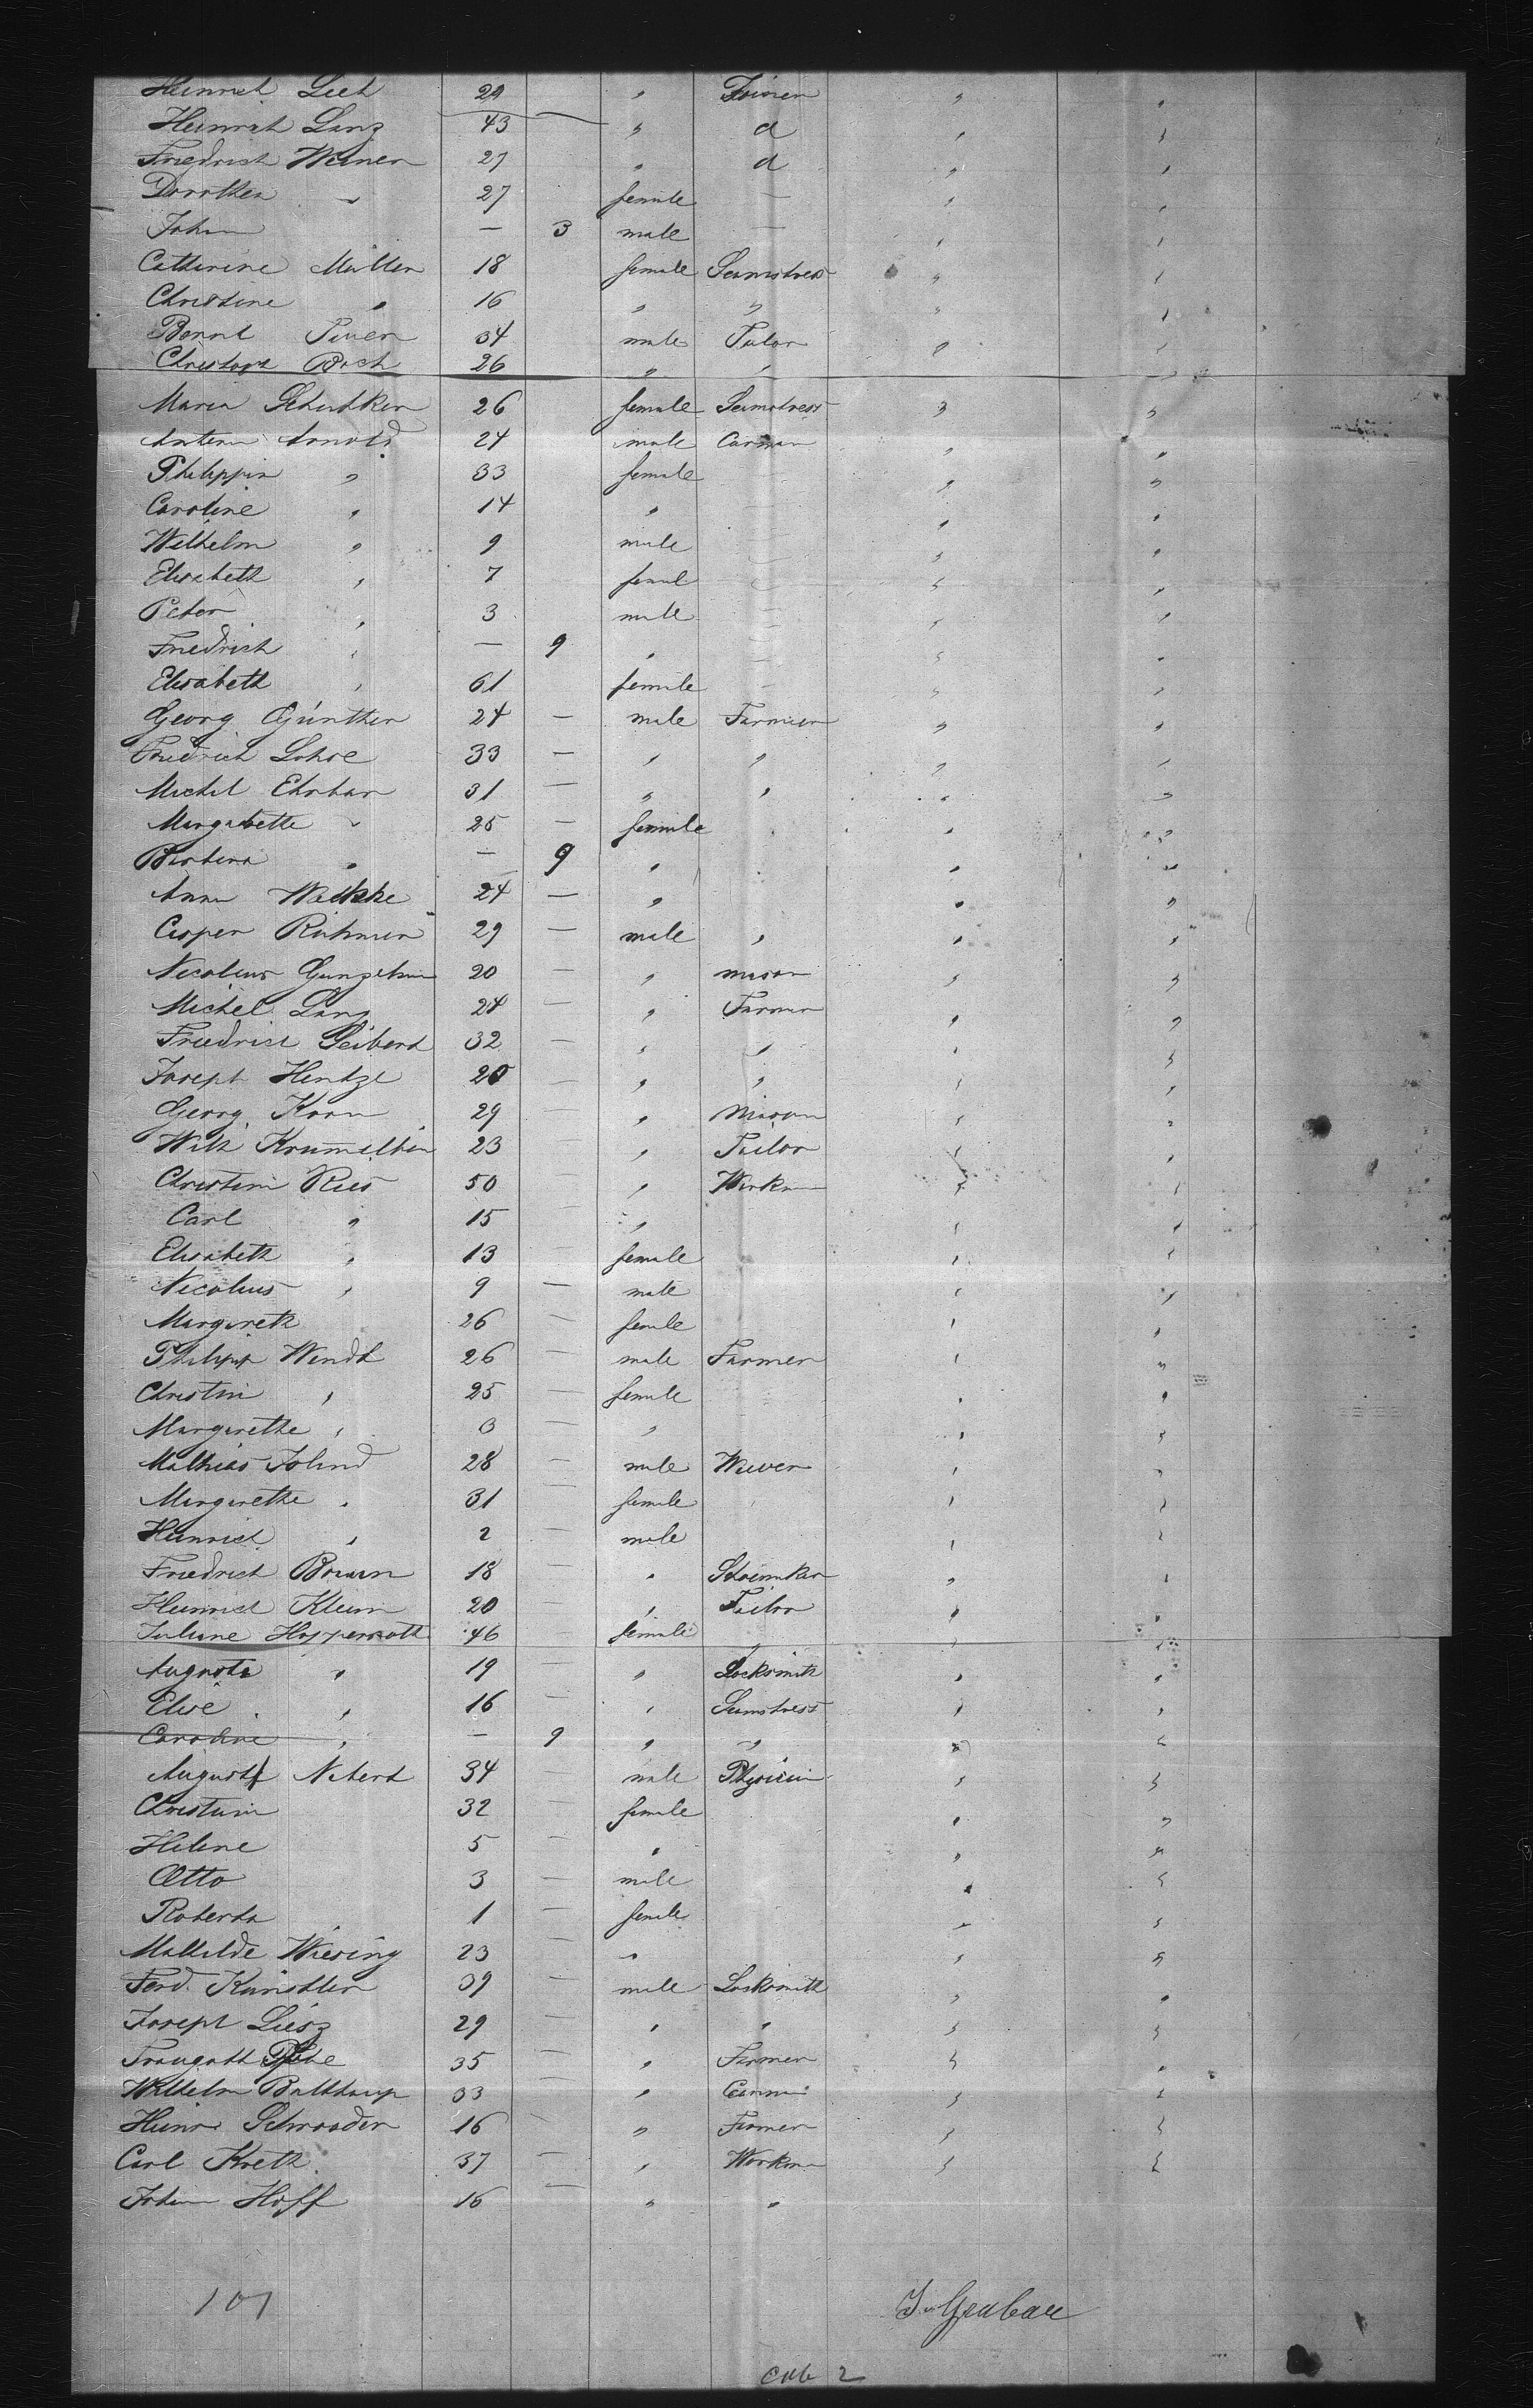 Heinrich 29 " Joiner " "
Heinrich Lanz 43 " d " "
Friedrich Weiner 27 " d " "
Dorothea " 27 female — " "
Johann — 3 male — " "
Catherine Müller 18 female Seamstress " "
Christine " 16 " " " "
Bernd 34 male Tailor " "
Christoph Bach 26 " " "
Maria 26 female Seamstress " "
Anton Arnold 24 male Carman " "
Philippin " 33 female " "
Caroline " 14 " " "
Wilhelm " 9 male " "
Elisabeth " 7 femal " "
Peter " 3 male " "
Friedrich " — 9 " " "
Elisabeth " 61 female " "
Georg Günther 24 — male Farmer " "
Friedrich Lohse 33 — " " " "
Michel Ehrhar 31 — " " " "
Margarette " 25 — female " "
Barbara " — 9 " " "
Anna 24 — " " "
Casper 29 — male " " "
Nicolaus 20 — " mason " "
Michel Lang 24 — " Farmer " "
Friedrich Seibert 32 — " " " "
Joseph Hentze 20 — " " " "
Georg Korn 29 — " Mason " "
Wilh 23 — " Tailor " "
Christian Ries 50 — " Workm " "
Carl " 15 — " " "
Elisabeth " 13 — female " "
Nicolaus " 9 — male " "
Margareth 26 — femle " "
Philipp Wendt 26 — male Farmer " "
Christin " 25 — female " "
Margarethe " 3 — " " "
Mathias 28 — male Weaver " "
Margarethe " 31 — female " "
Heinrich " 2 — male " "
Friedrich Braun 18 — " Shoemker " "
Heinrich Klein 20 — " Tailor " "
Juliane 46 — female " "
Auguste " 19 — " Locksmith " "
Elise " 16 — " Seamstress " "
Caroline " — 9 " " " "
August 34 — male Physician " "
Christian 32 — female " "
Helene 5 — " " "
Otto 3 — male " "
Roberta 1 — femle " "
Mathilde Wiesing 23 — " " "
Ferd. Künstler 39 — male Locksmith " "
Joseph 29 — " " " "
Traugott 35 — " Farmer " "
Wilhelm 33 — " " "
Heinr Schroeder 16 — " Farmer " "
Carl Kreth 37 — " Workm " "
Johann Hoff 16 — " "
107
cab 2